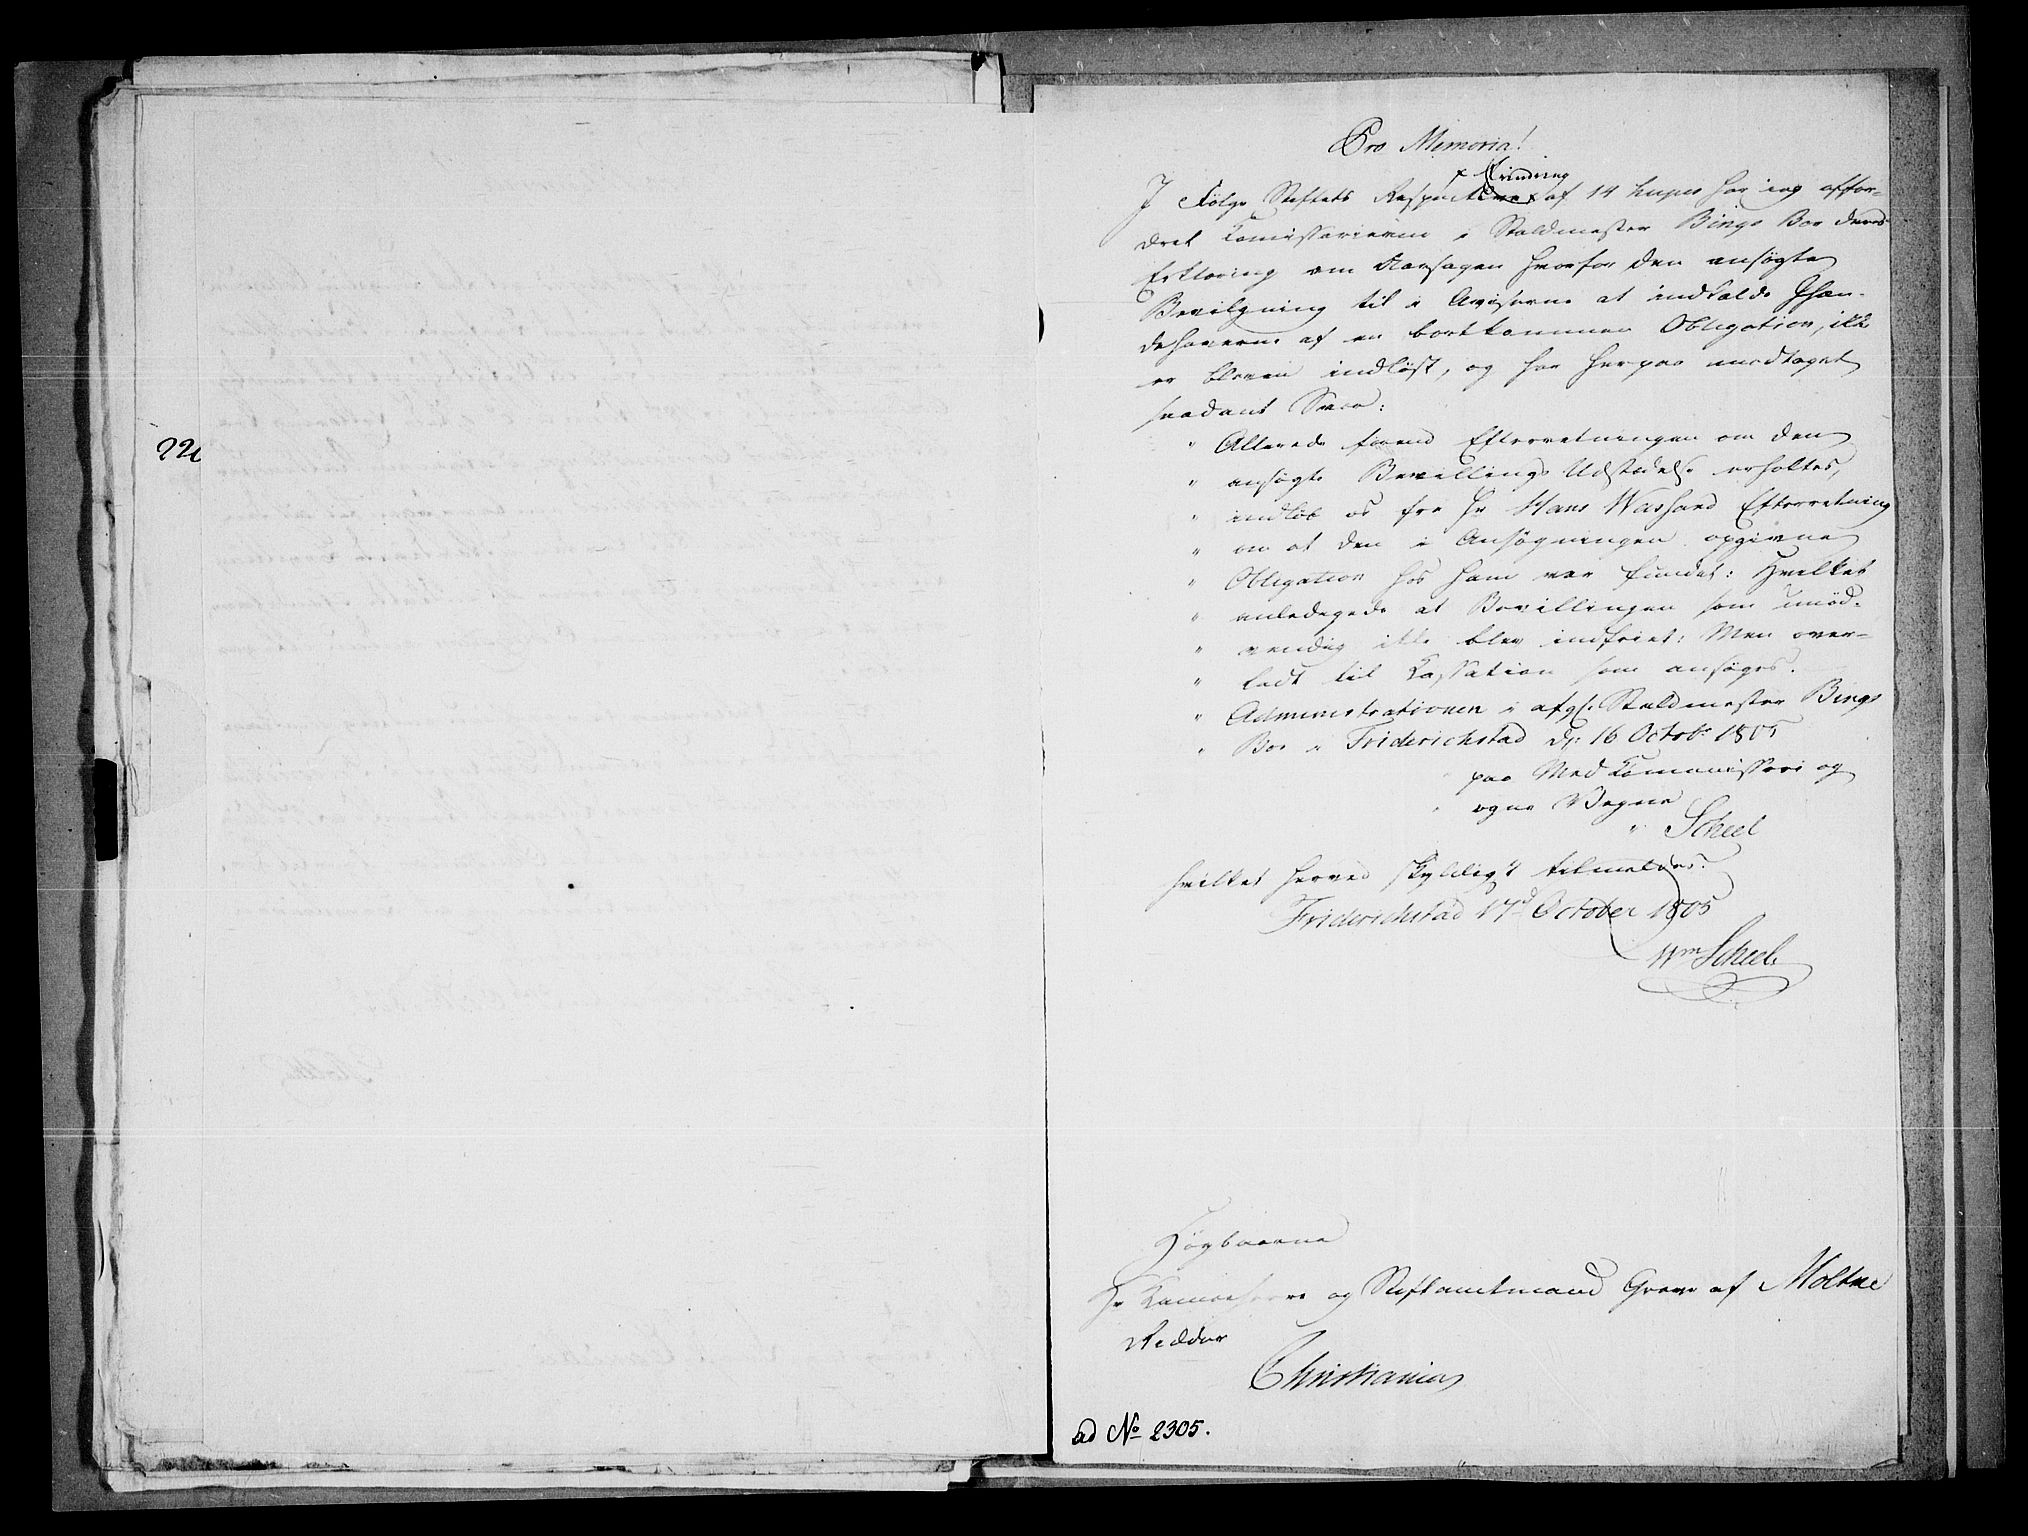 221
Pro Memoria!
x Erindring
I Følge Stiftets Respective x af 14 hujus har jeg affor-
dret Commissarierne i Staldmester Bings Boe deres
Erklæring om Aarsagen hvorfor den ansøgte
Bevilgning til i Aviserne at indkalde Ihæn-
dehaverne af en bortkommen Obligation, ikke
er bleven indløst, og har herpaa modtaget
saadant Svar:
" Allerede forend Efterretningen om den
" ansøgte Bevillings Udstædelse erholtes,
" indløb os fra Hr Hans Washard Efterretning
" om at den i Ansøgningen opgivne
" Obligation hos ham var fundet: Hvilket
" anledegede at Bevillingen som unød-
" vendig ikke blev indfriet: Men over-
" ladt til Cassation som ansøges.
" Administrationen i afgl. Staldmester Bings
" Boe i Friderichstad d: 16 Octobr 1805
" paa Med Commissairi og
" egne Vegne
" Scheel
hvilket herved skyldigst tilmeldes.
Friderichstad 17d October 1805
Wm Scheel
Høgbaarne
Hr Kammerherre og Stiftamtmand Greve af Moltke
Ridder
Christiania
ad No 2305.